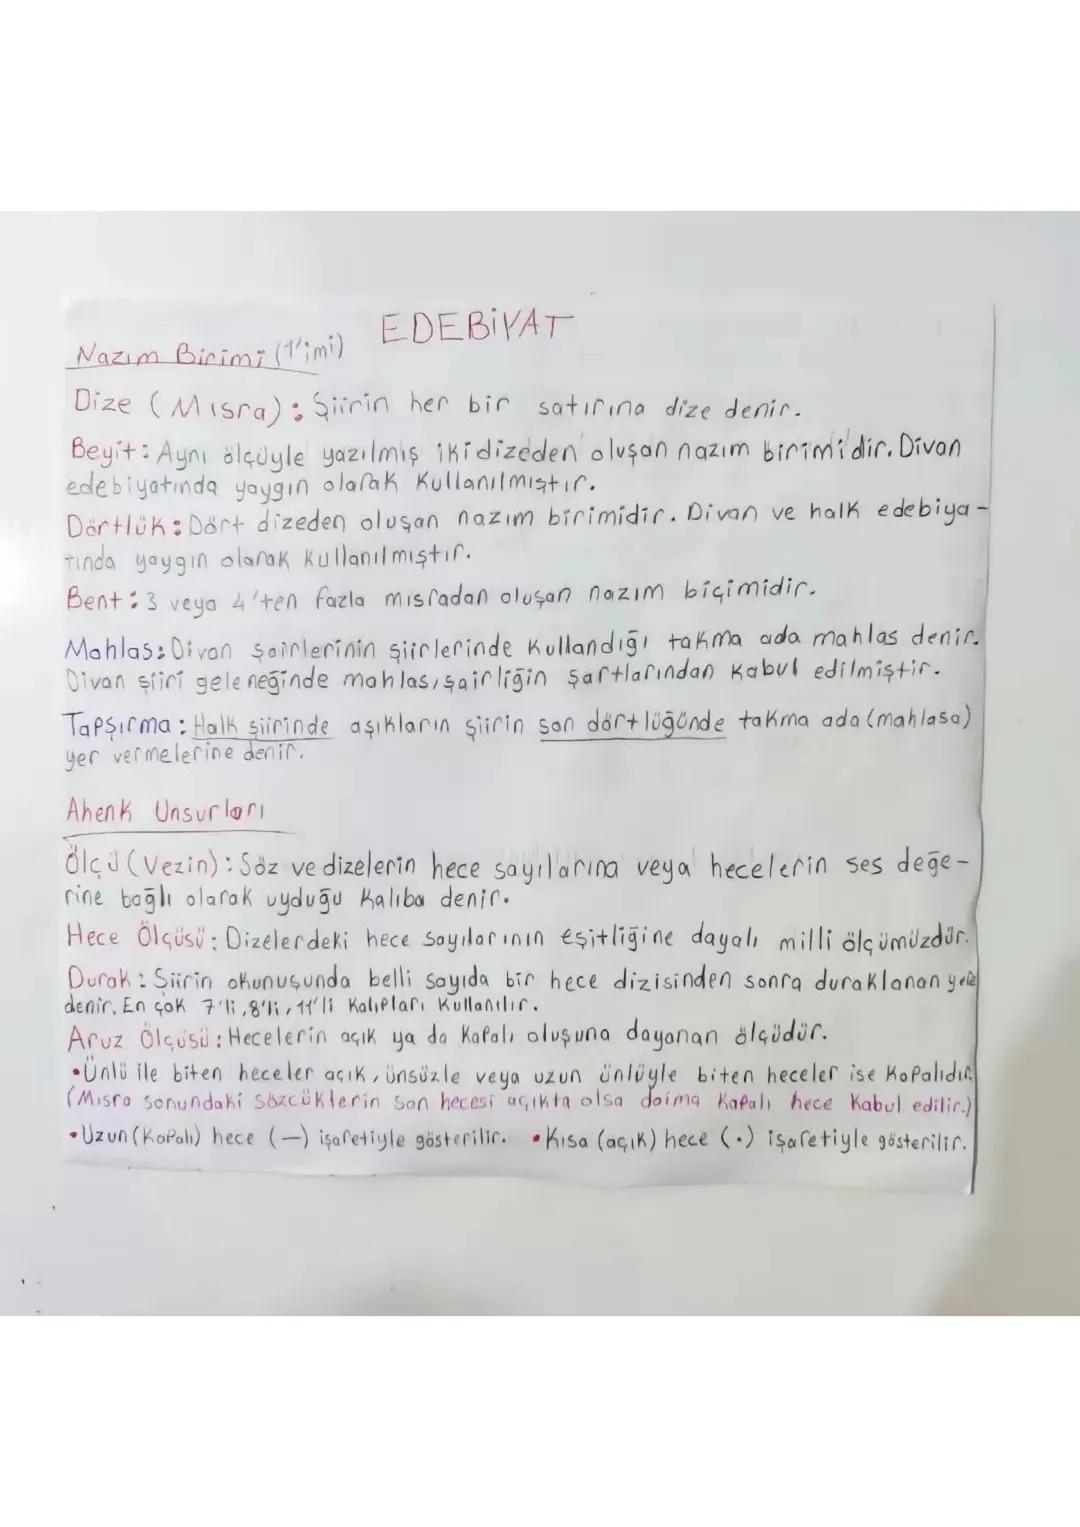 EDEBİYAT
Nazım Birimi (1'imi)
Dize (Mısra): Şiirin her bir satırına dize denir.
Beyit: Aynı ölçüyle yazılmış iki dizeden oluşan nazım birimidir. Divan
edebiyatında yaygın olarak kullanılmıştır.
Dörtlük: Dört dizeden oluşan nazım birimidir. Divan ve halk edebiya-
tında yaygın olarak kullanılmıştır.
Bent: 3 veya 4'ten fazla mısradan oluşan nazım biçimidir.
Mahlas: Divan şairlerinin şiirlerinde kullandığı takma ada mahlas denir.
Divan şiiri geleneğinde mahlas, şairliğin şartlarından kabul edilmiştir.
Tapşırma: Halk şiirinde aşıkların şiirin son dörtlüğünde takma ada (mahlasa)
yer vermelerine denir.
Ahenk Unsurları
Ölçü (Vezin): Söz ve dizelerin hece sayılarına veya hecelerin ses değe-
rine bağlı olarak uyduğu kalıba denir.
Hece Ölçüsü: Dizelerdeki hece sayılarının eşitliğine dayalı milli ölçümüzdür.
Durak: Şiirin okunuşunda belli sayıda bir hece dizisinden sonra duraklanan yere
denir. En çok 7'li, 8'li, 11'li kalıpları kullanılır.
Aruz Ölçüsü: Hecelerin açık ya da kapalı oluşuna dayanan ölçüdür.
•Ünlü ile biten heceler açık, ünsüzle veya uzun ünlüyle biten heceler ise kapalıdır.
(Mısra sonundaki sözcüklerin son hecesi açıkta olsa daima kapalı hece kabul edilir.)
•Uzun (kapalı) hece (—) işaretiyle gösterilir. •Kısa (açık) hece (.) işaretiyle gösterilir.